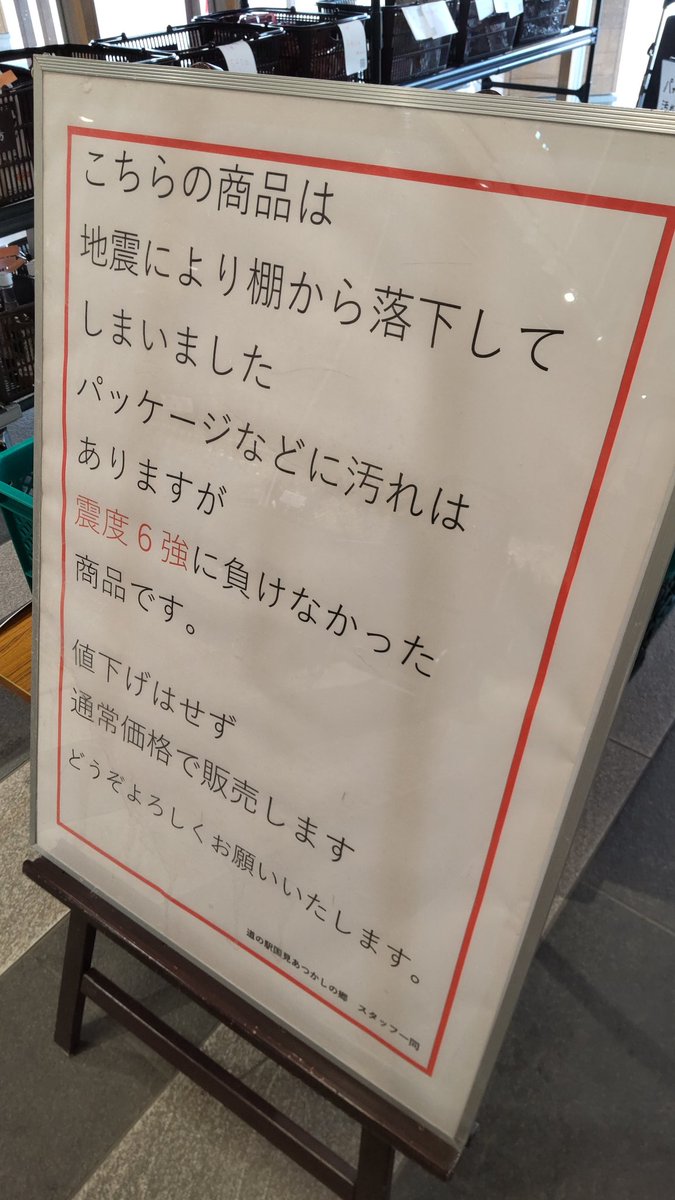 こちらの商品は
地震により棚から落下して
しまいました
パッケージなどに汚れは
ありますが
震度6強に負けなかった
商品です。
値下げはせず
通常価格で販売します
どうぞよろしくお願いいたします。
道の駅国見あつかしの郷 スタッフ一同